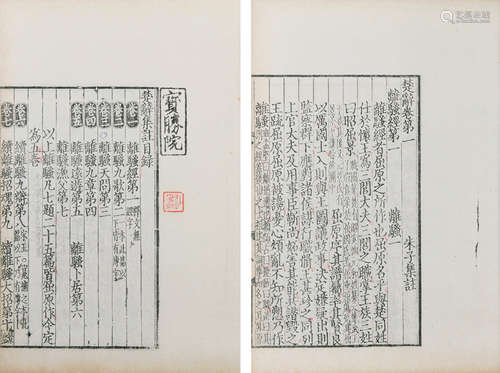 寶勝院
楚辭集註目錄
卷一 離騷經第一
卷二 離騷九歌第二
卷三 離騷天問第三
卷四 離騷九章第四
卷五 離騷遠遊第五 離騷卜居第六
離騷漁父第七
以上離騷凡七題二十五篇皆屈原作今定
為五卷
卷六 續離騷九辯第八
卷七 續離騷招魂第九 續離騷大招第十
楚辭卷第一 朱子集註
離騷經第一 離騷一
離騷經者屈原之所作也屈原名平與楚同姓
仕於懷王為三閭大夫三閭之職掌王族三姓
曰昭屈景屈原序其譜屬率其賢良
以厲國士入則與王圖議政事決定嫌疑出則
監察群下應對諸侯謀行職脩王甚珍之同列
上官大夫及用事臣靳尚妬害其能共譖毀之
王疏屈原屈原被讒憂心煩亂不知所愬乃作